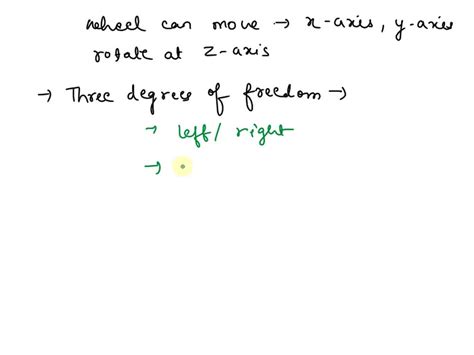 wheel can move → x-axis, y-axis
rotate at z-axis
→ Three degrees of freedom →
→ left/ right
→